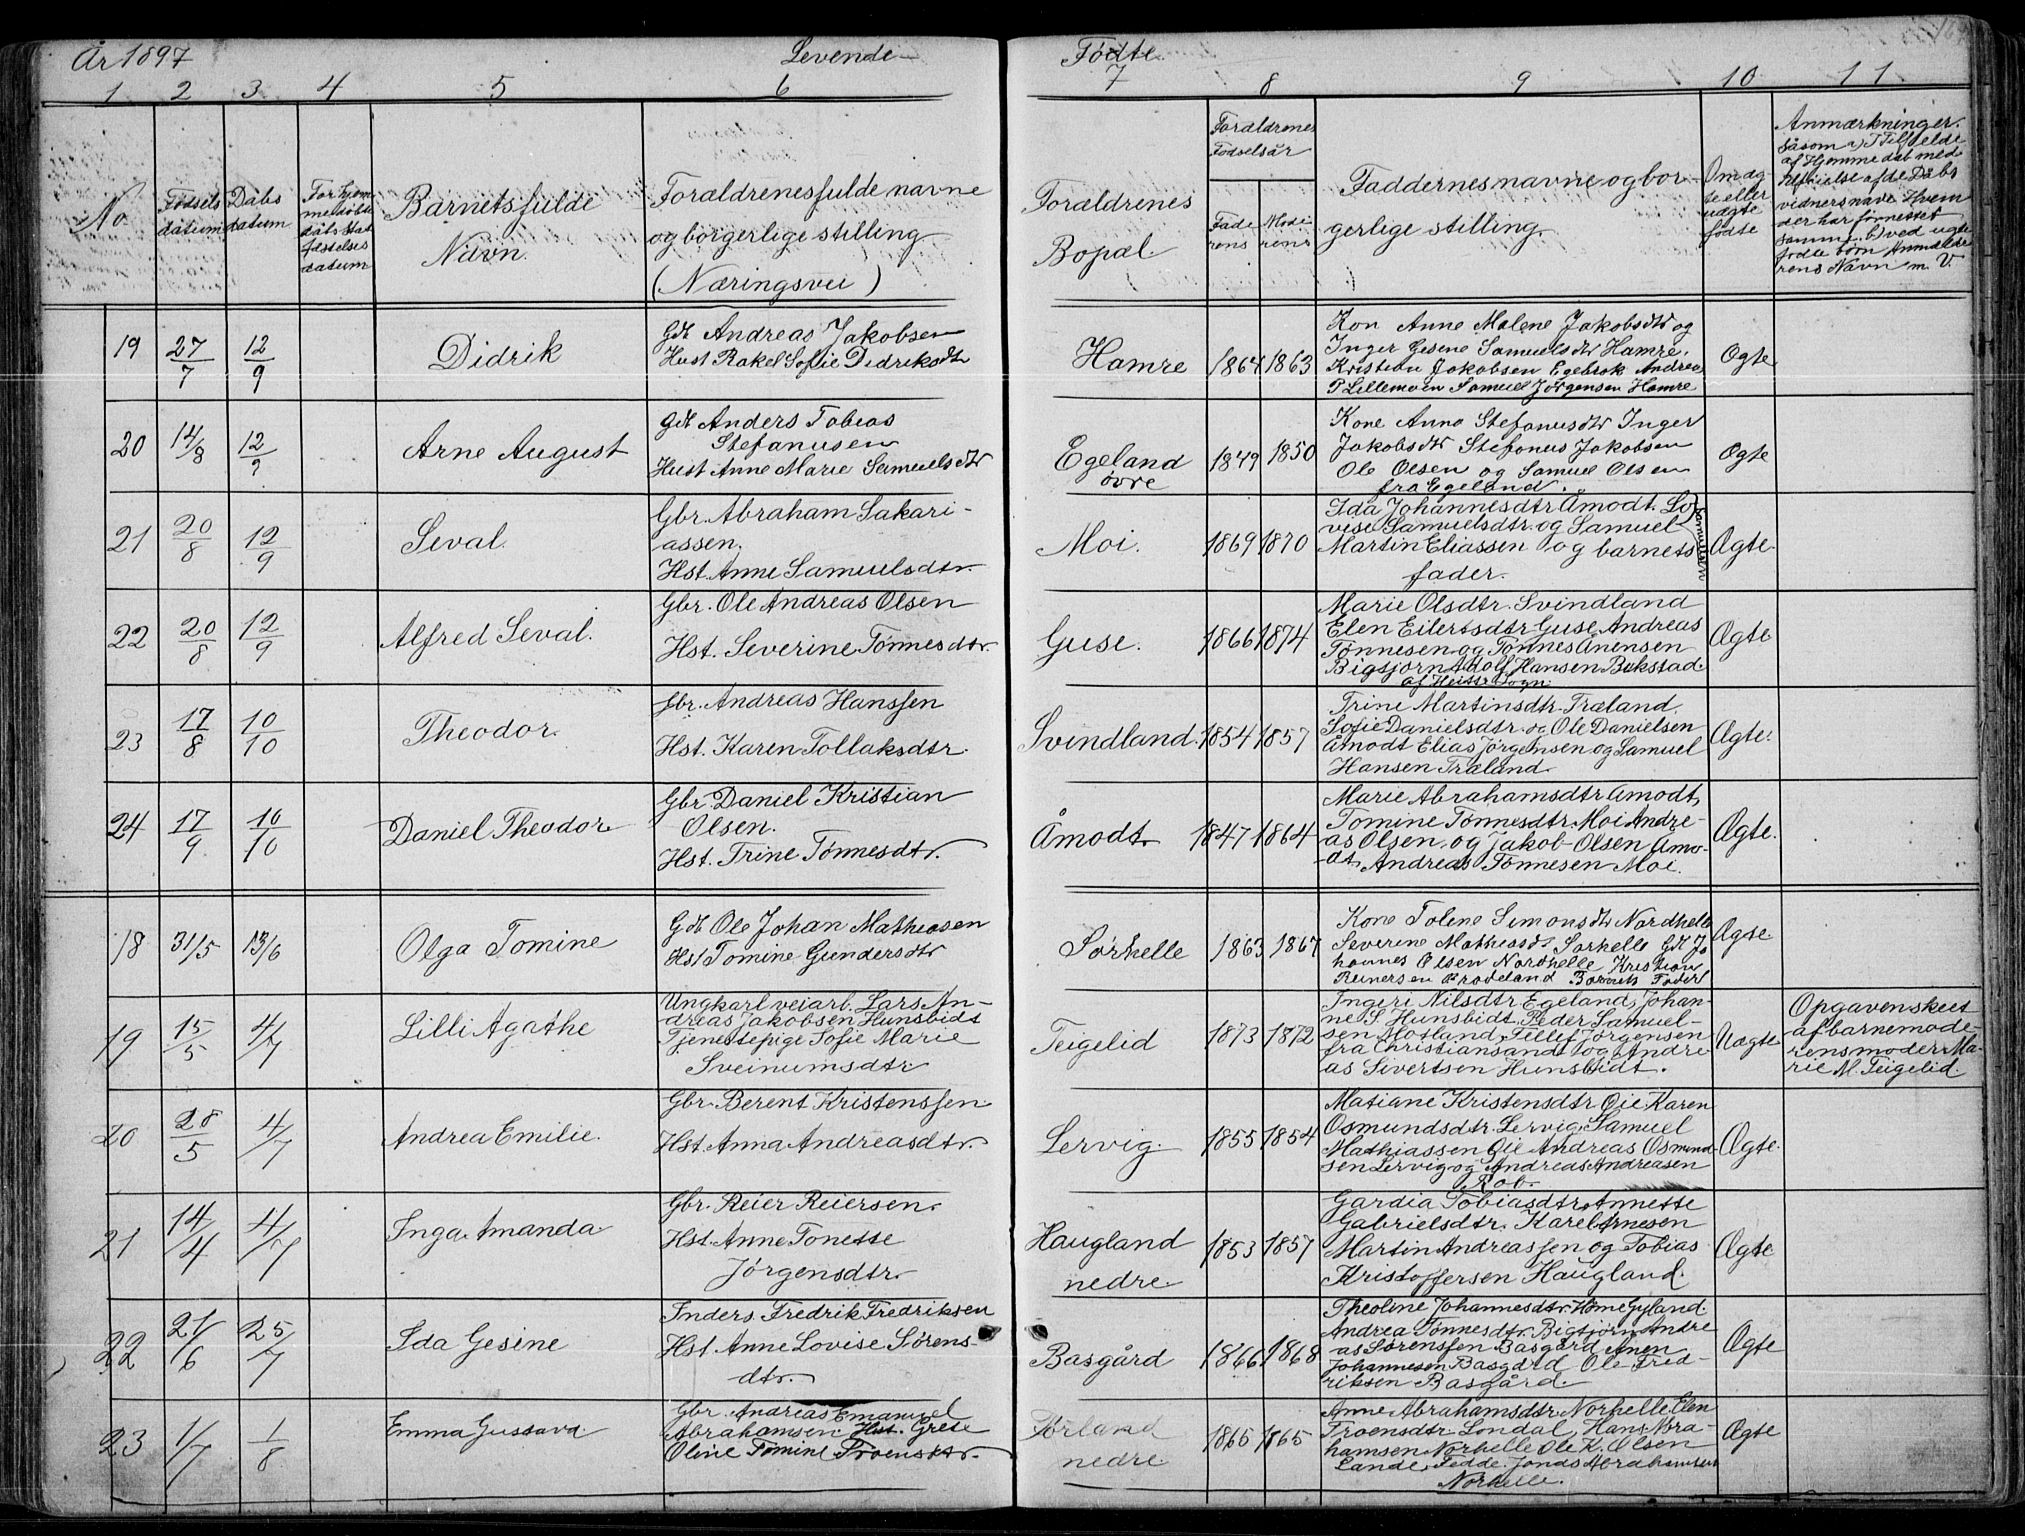 År 1897 Levende Fødte
1 2 3 4 5 6 7 8 9 10 11
No
Fødsels
datum
Dåbs
datum
Barnets fulde
Navn.
Forældrenes fulde navne
og borgerlige stilling
(Næringsvei)
Forældrenes
Bopæl.
Forældrenes
Fødselsår
Fade
rens
Mode
rens
Faddernes navne og bor
gerlige stilling.
Om æg
te eller
uægte
fødte
Anmærkninger.
såsom a) I Tilfælde
af Hjemmedåb med
vidners navn Hvem
der har forrettet
samme b) ved uægte
fødte børn Anmelde
rens Navn m. V.
19 27/7 12/9 Didrik
Gdr Andreas Jakobsen
Hust Rakel Sofie Didriksdtr
Hamre 1864 1863
Kon Anne Malene Jakobsdtr og
Inger Gesene Samuelsdtr Hamre.
Kristian Jakobsen Egebrok Andreas
P Lillemoen Samuel Jørgensen Hamre
Ægte
20 14/8 12/9 Arne August
Gdr Anders Tobias
Stefanusen
Hust Anne Marie Samuelsdtr
Egeland
øvre
1849 1850
Kone Anna Stefanusdtr Inger
Jakobsdtr Stefanus Jakobsen
Ole Olsen og Samuel Olsen
fra Egeland.
Ægte
21 20/8 12/9 Seval.
Gbr. Abraham Sakari-
assen.
Hst. Anne Samuelsdtr.
Moi. 1869 1870
Ida Johannesdtr Åmodt. Lo
vise Samuelsdtr. og Samuel
Martin Eliassen og barnets
fader.
Ægte.
22 20/8 12/9 Alfred Seval.
Gbr. Ole Andreas Olsen
Hst. Severine Tønnesdtr.
Guse. 1866 1874
Marie Olsdtr. Svindland
Elen Eilertsdtr Guse Andreas
Tønnesen og Tønnes Anensen
Bigsjorn Adolf Hansen Bukstad
Ægte
23 17/8 10/10 Theodor.
Gbr. Andreas Hanssen
Hst. Karen Tollaksdtr.
Svindland. 1854 1857
Trine Martinsdtr. Træland.
Sofie Danielsdtr. og Ole Danielsen
Åmodt Elias Jørgensen og Samuel
Hansen Træland.
Ægte.
24 17/9 10/10 Daniel Theodor
Gbr. Daniel Kristian
Olsen.
Hst. Trine Tønnesdtr.
Åmodt. 1847 1864
Marie Abrahamsdtr Åmodt,
Tomine Tønnesdtr. Moi Andre-
as Olsen og Jakob Olsen Åmo-
dt, Andreas Tønnesen Moi.
Ægte.
18 31/5 13/6 Olga Tomine
Gdr Ole Johan Mathiasen
Hst Tomine Gundersdtr
Sørhelle 1863 1867
Kone Tolene Simonsdtr Nordhelle
Severine Mathiasdtr Sørhelle Gdr Jo
hannes Olsen Nordhelle Kristian
Reinersen Frodeland Barnets Fader
Ægte
19 15/5 4/7 Lilli Agathe
Ungkarl veiarb. Lars An-
dreas Jakobsen Hunsbidt
Tjenestepige Sofie Marie
Sveinumsdtr
Teigelid 1873 1872
Ingeri Nilsdtr Egeland, Johan-
ne S Hunsbidt. Peder Samuel-
sen Motland, Tellef Jørgensen
fra Christiansand og Andre-
as Sivertsen Hunsbidt.
Uægte
Opgaven skeet
af barnemode-
rens moder Ma-
rie M. Teigelid.
20 28/5 4/7 Andrea Emilie.
Gbr. Berent Kristenssen
Hst. Anna Andreasdtr.
Lervig. 1855 1854
Matiane Kristensdtr Øie Karen
Osmundsdtr. Lervig, Samuel
Mathiassen Øie Andreas Osmund
sen Lervig og Andreas Andreasen
Rob.
Ægte.
21 14/4 4/7 Inga Amanda.
Gbr. Reier Reiersen.
Hst. Anne Tonette
Jørgensdtr.
Haugland
nedre.
1853 1857
Gardia Tobiasdtr, Annette
Gabrielsdtr. Karel Arnesen
Martin Andreassen og Tobias
Kristoffersen Haugland.
Ægte
22 21/6 25/7 Ida Gesine
Inders. Fredrik Fredriksen
Hst. Anne Lovise Sørens-
dtr.
Basgård 1866 1868
Theoline Johannesdtr. Home Gyland.
Andrea Tønnesdtr. Bigtjørn Andre
as Sørenssen Basgård Anen
Johannesen Basgård Ole Fred-
riksen Basgård.
Ægte
23 1/7 1/8 Emma Gustava.
Gbr. Andreas Emanuel
Abrahamsen Hst. Grete
Oline Tomine Troensdtr.
Førland
nedre
1865 1865
Anne Abrahamsdtr Norhelle Elen
Troensdtr Londal, Hans Abra-
hamsen Norhelle Ole K. Olsen
Lande, Fedde. Jonas Abrahamsen
Norhelle.
Ægte